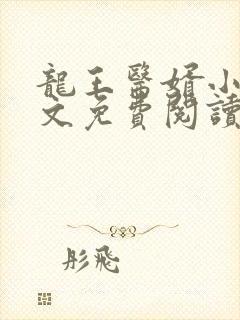 龍王醫婿小
文免費閱讀
彤飛